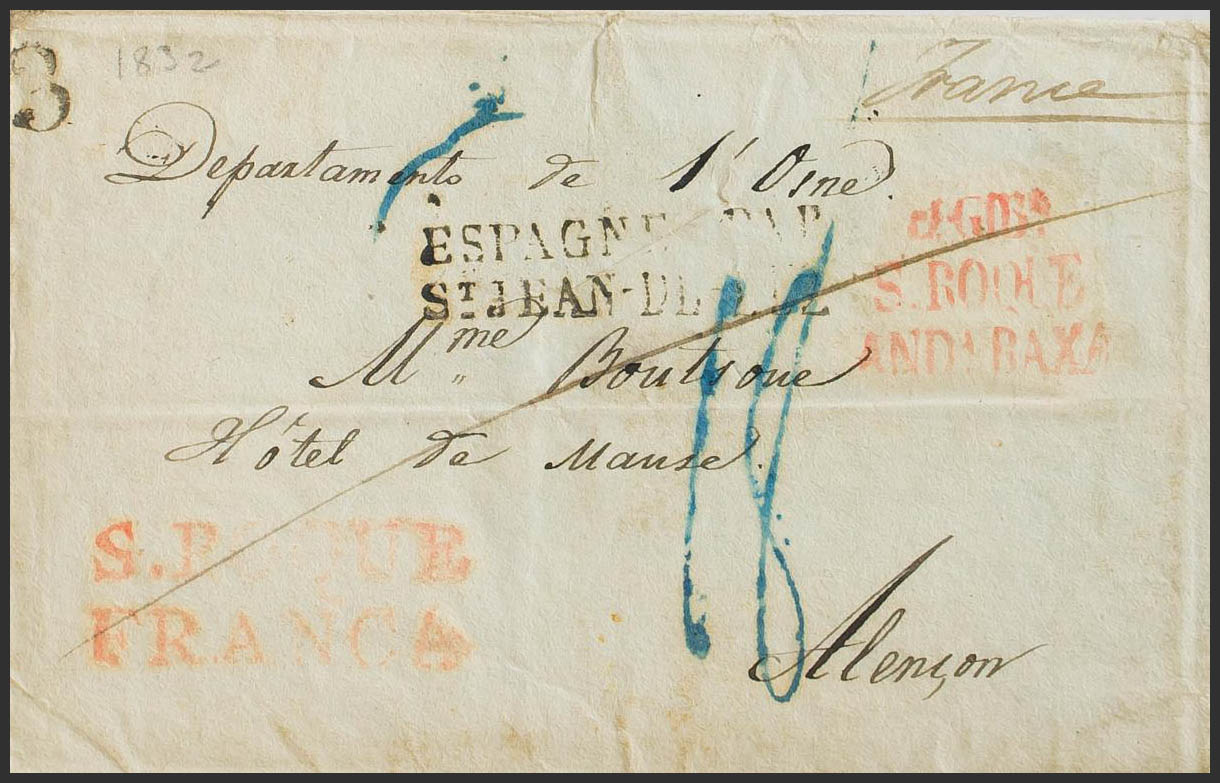 8
1832
France
Departamento de l'Orne.
ESPAGNE PAR
ST JEAN-DE-LUZ
S. ROQUE
ANDA BAXA
Mme
Hôtel de
18
S. ROQUE
FRANCA
Alençon